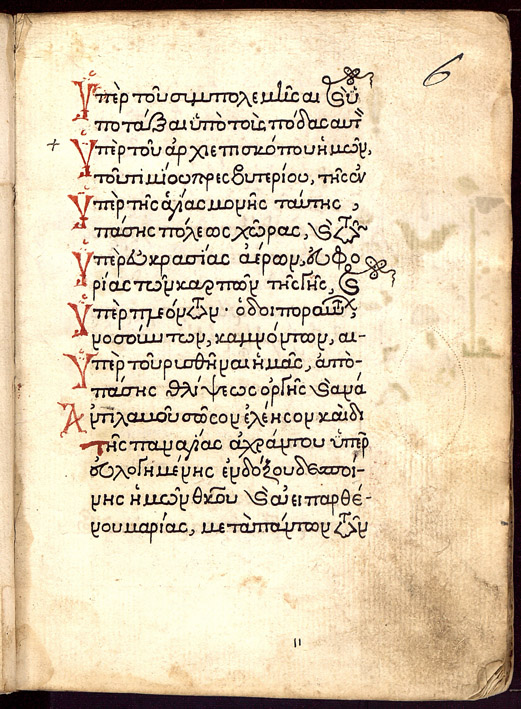 6
Ὑπὲρ τοῦ συμπολεμῆσαι καὶ ὑ
ποτάξαι ὑπὸ τοὺς πόδας αυτ
+ Ὑπὲρ τοῦ ἀρχιεπισκόπου ἡμῶν,
τοῦ τιμίου πρεσβυτερίου, τῆς ἐν
Ὑπὲρ τῆς ἁγίας μονῆς ταύτης ,
πάσης πόλεως χώρας, καὶ τῶν
Ὑπὲρ εὐκρασίας ἀέρων, εὐφο
ρίας τῶν καρπῶν τῆς γῆς, καὶ
Ὑπὲρ πλεόντων · ὁδοιπορούντων,
νοσούντων, καμνόντων, αι-
Ὑπὲρ τοῦ ρυσθῆναι ἡμᾶς, ἀπὸ-
πάσης θλίψεως ὀργῆς καὶ ανά
Ἀντιλαβοῦ σῶσον ἐλέησον καὶ δι
Τῆς παναγίας ἀχράντου ὑπὲρ
εὐλογημένης ἐνδόξου δεσποί-
νης ἡμῶν θκου καὶ ἀει παρθέ-
νου μαρίας, μετὰ πάντων τῶν
11